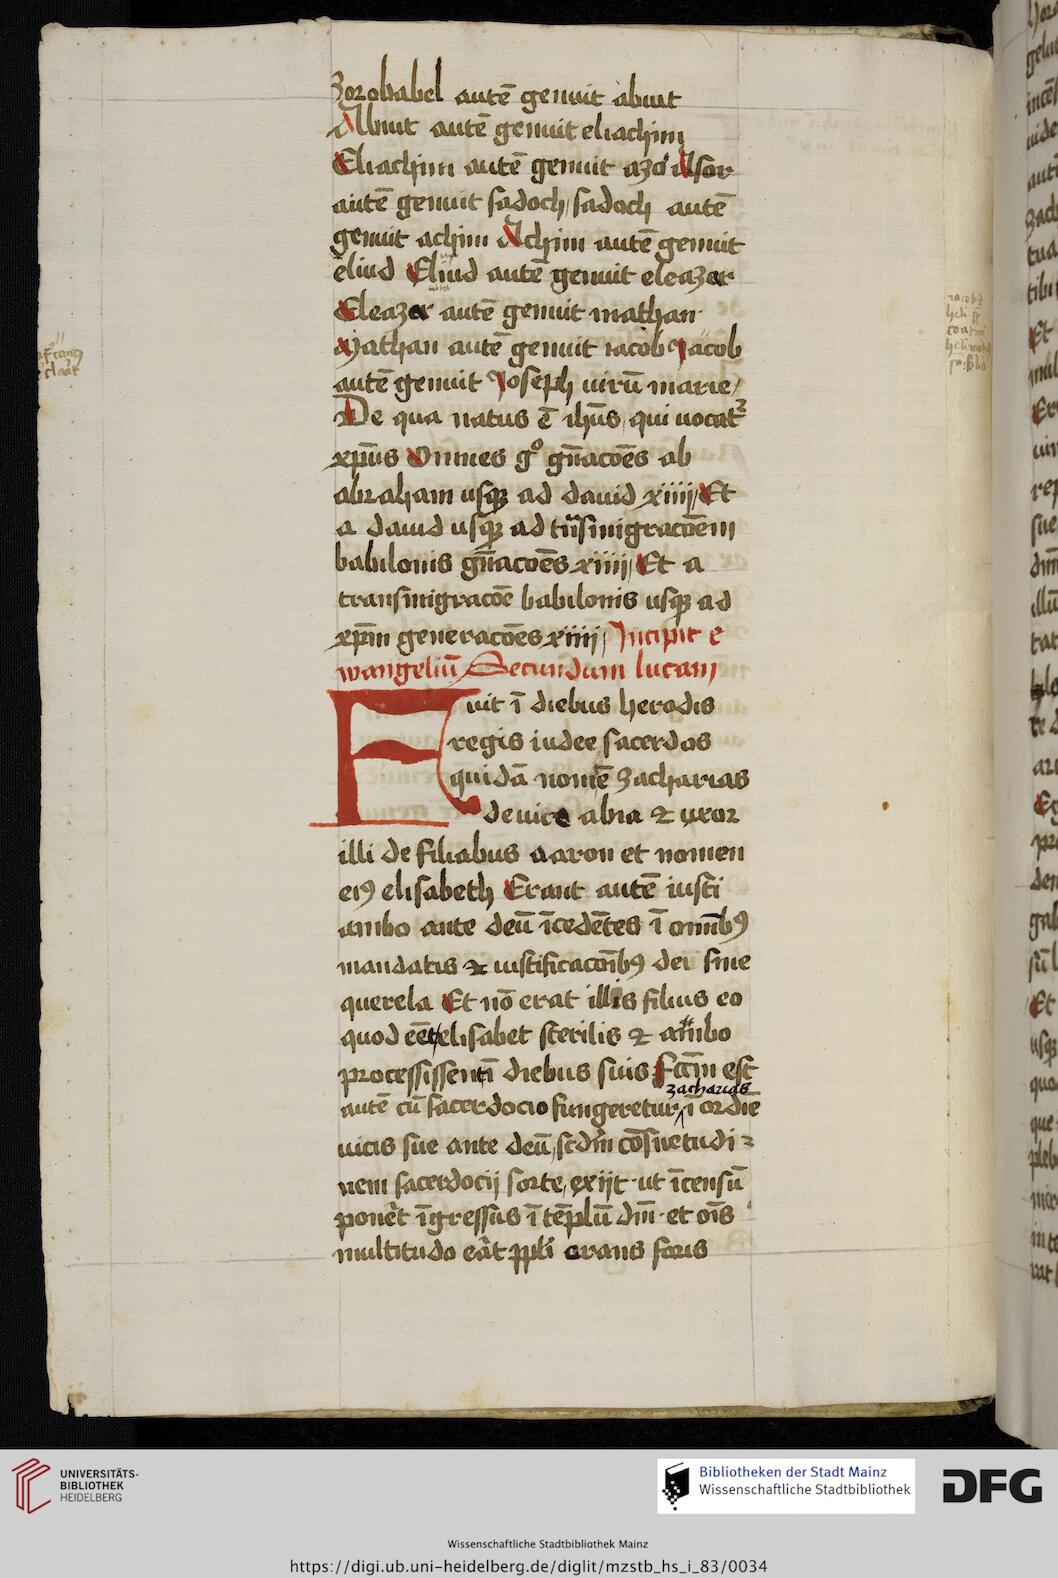 Zorobabel autē genuit abiut
Abiut autē genuit eliachim
Eliachim autē genuit azor Asor
autē genuit sadoch / sadoch autē
genuit achim Achim autē genuit
eliud Eliud autē genuit eleazar
Eleazar autē genuit mathan
Mathan autē genuit iacob Jacob
autē genuit Joseph uirū marie /
De qua natus ē ihūs / qui uocat᷑
xp̄us Omnes gͦ gn̄acoēs ab
abraham usqꝫ ad dauid xiiii / Et
a dauid usqꝫ ad trāsmigracoēm
babilonis gn̄acoēs xiiii / Et a
transmigracoē babilonis usqꝫ ad
xp̄m generacoēs xiiii / Incipit e
wangeliū Secundum lucam
Fuit ī diebus herodis
regis iudee sacerdos
quidā nomīe Zacharias
de uice abia ⁊ uxor
illi de filiabus aaron et nomen
eiꝯ elisabeth Erant autē iusti
ambo ante deū īcedētes ī om̄ībꝯ
mandatis ⁊ iustificacoīb̄ꝯ dei sine
querela Et nō erat illis filius eo
quod eēt / elisabet sterilis ⁊ ambo
processissent ī diebus suis Fc̄m est
zacharias
autē cū sacerdocio fungeretur ī ordiē
uicis sue ante deū / scdm̄ cōsuetudi⹀
nem sacerdocij sorte / exijt ut īcensū
ponet īgressus ī tēplū dn̄i et oīs
multitudo eāt ppl̄i orans foris
UNIVERSITÄTS-
BIBLIOTHEK
HEIDELBERG
Bibliotheken der Stadt Mainz
Wissenschaftliche Stadtbibliothek
DFG
Wissenschaftliche Stadtbibliothek Mainz
https://digi.ub.uni-heidelberg.de/diglit/mzstb_hs_i_83/0034